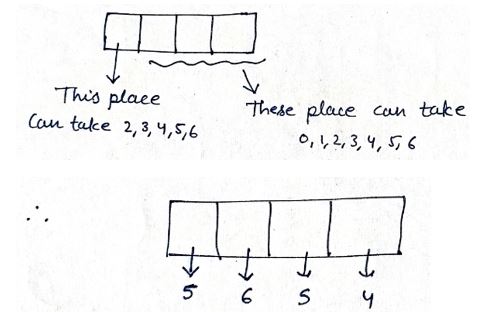 This place
Can take 2,3,4,5,6
These place can take
0,1,2,3,4,5,6
∴
5 6 5 4